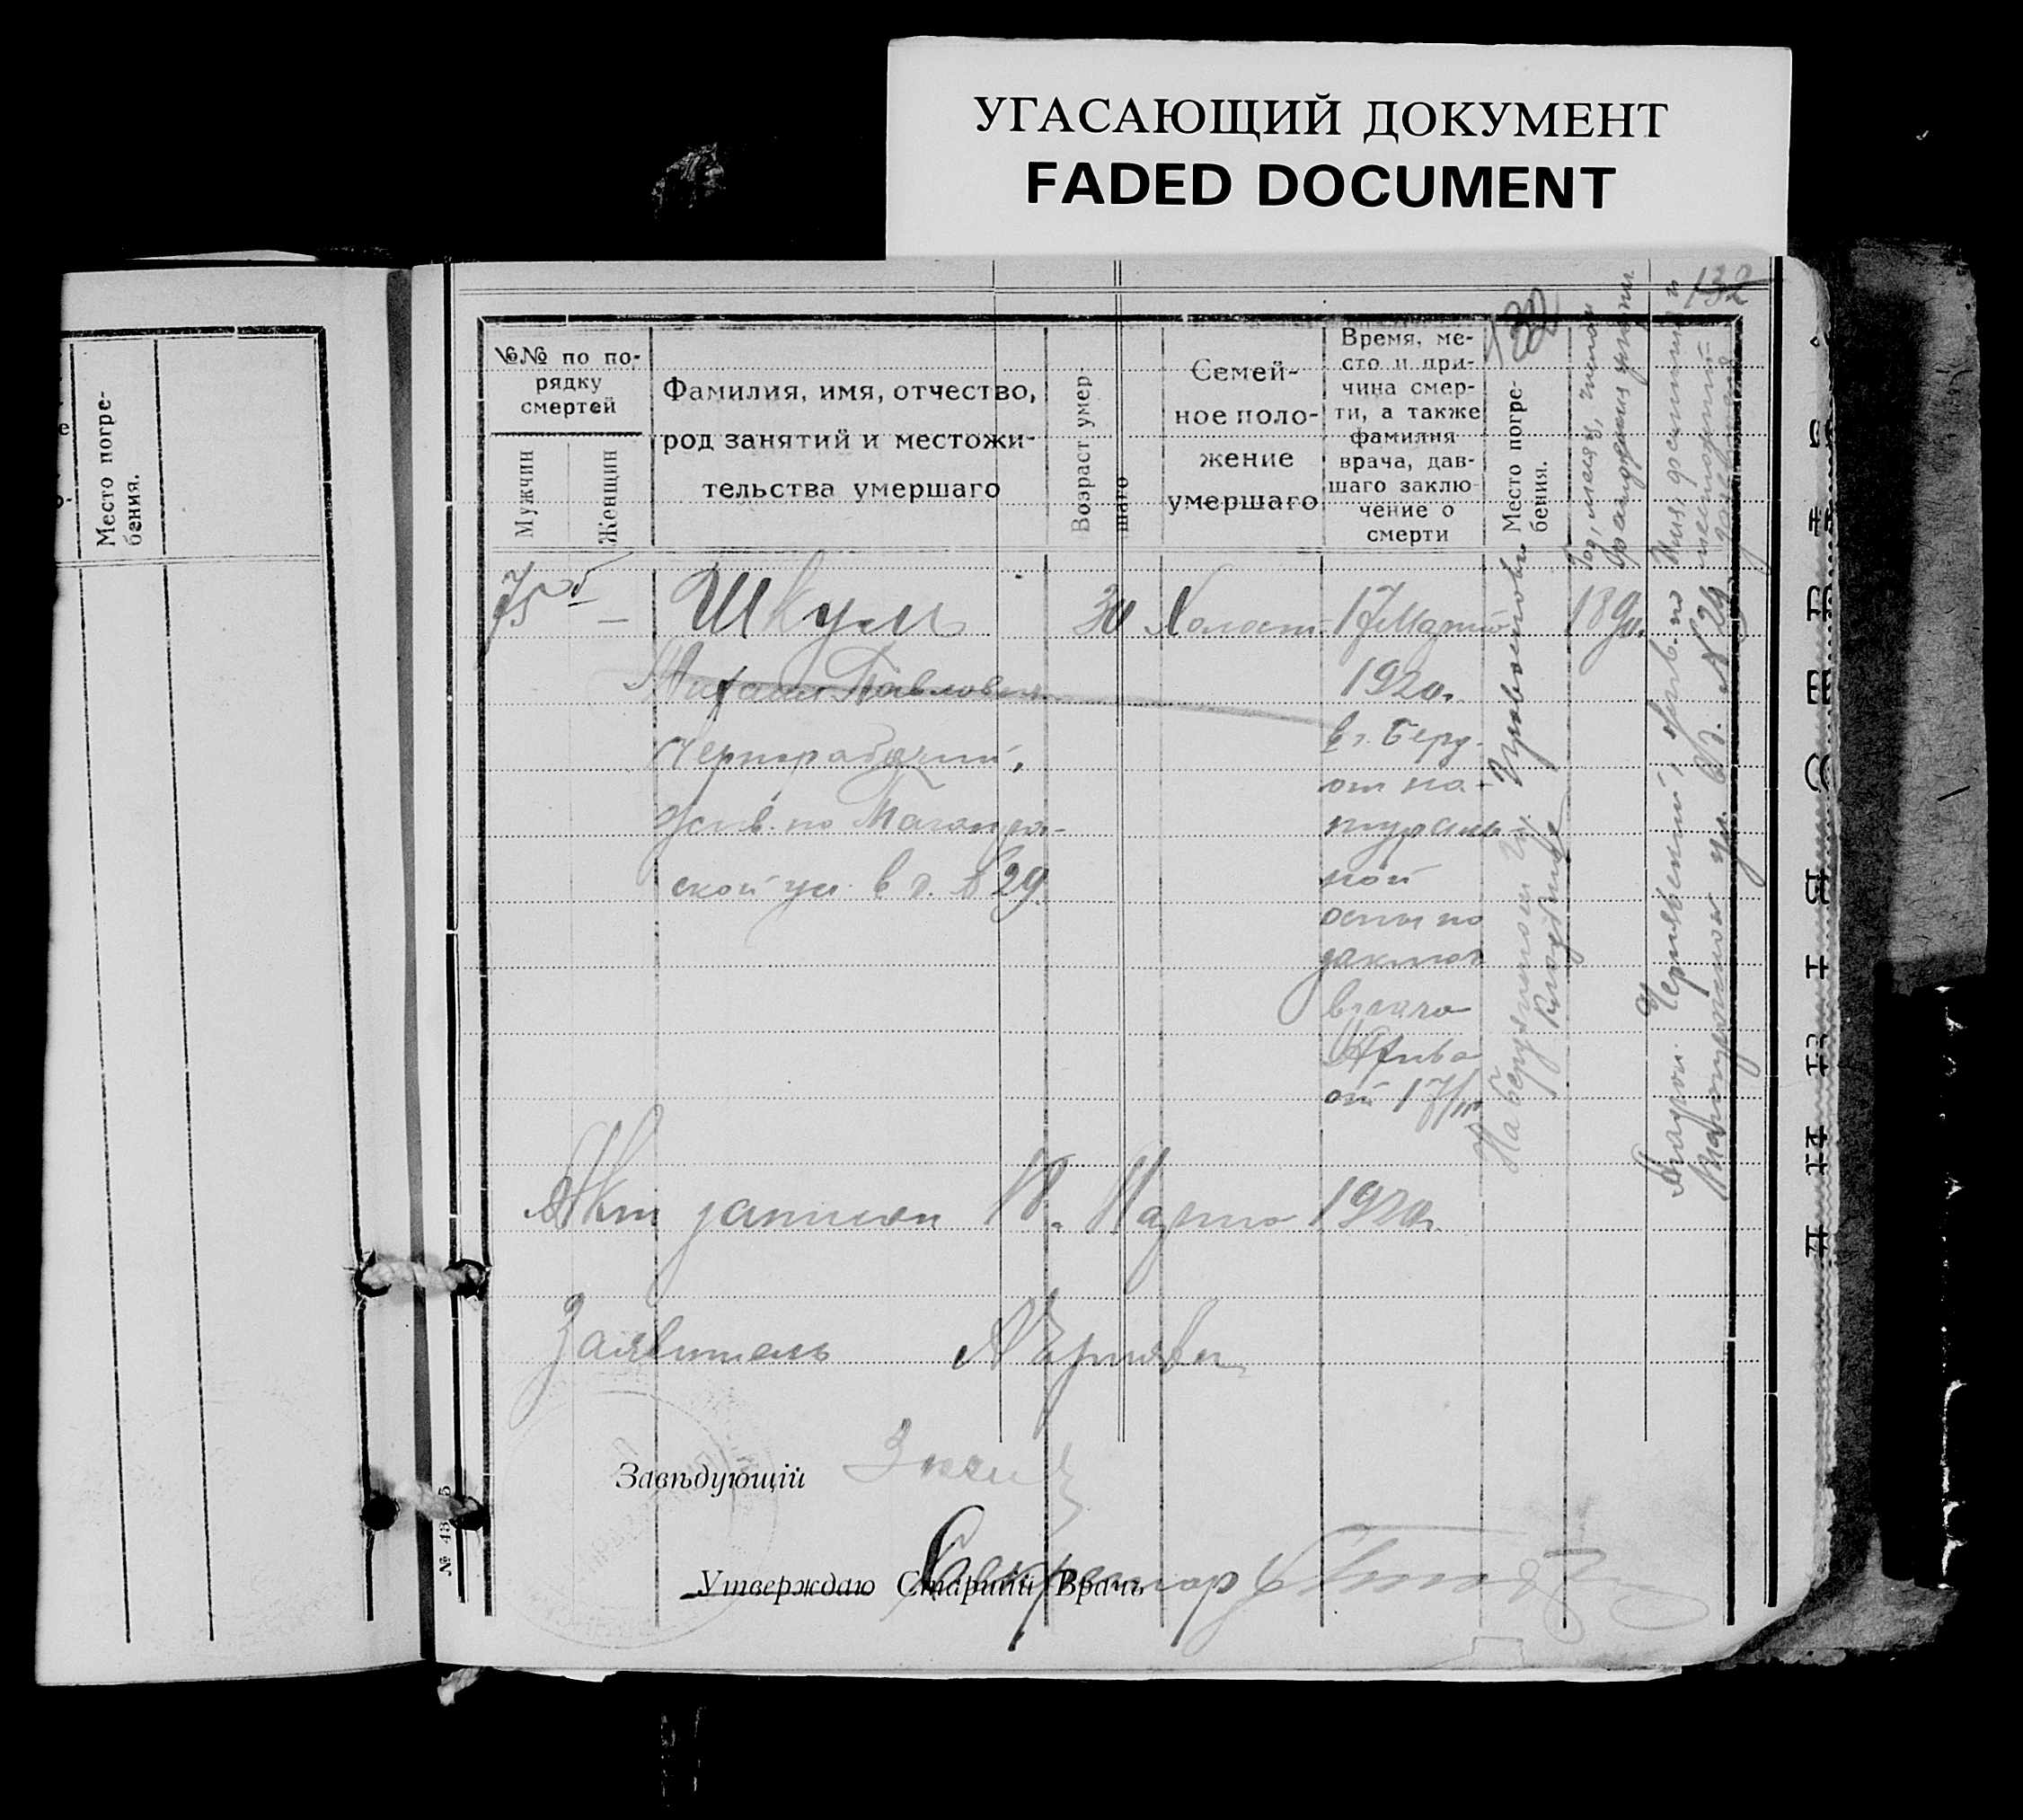 УГАСАЮЩИЙ ДОКУМЕНТ
FADED DOCUMENT
Место погре-
бения.
132
132
№№ по по-
рядку
смертей
Мужчин
Женщин
Фамилия, имя, отчество,
род занятий и местожи-
тельства умершаго
Возраст умер-
шаго
Семей-
ное поло-
жение
умершаго
Время, ме-
сто и при-
чина смер-
ти, а также
фамилия
врача, дав-
шаго заклю-
чение о
смерти
Место погре-
бения.
Год, месяц, число
рождения
Имя, фамилия и
75 —
Шкум
Михаил Павлович
Чернорабочий,
жив. по Таганрог-
ской ул. в д. № 29
30
Холост
17 Марта
1920г.
в г. Берд.
от на-
тураль-
ной
оспы по
заключ
врача
от 17/III
кладбище
1890г.
Чернявский, жив. по
ул. в д. № 29
Акт записан 18. Марта 1920г.
Заявитель
Завѣдующій
Утверждаю Старшій Врачъ
Секретарь